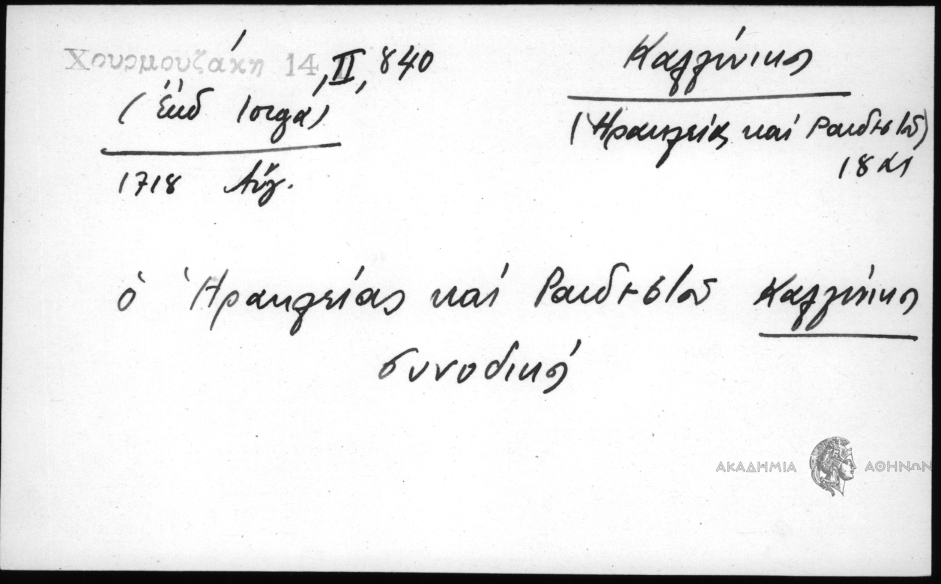 Χουρμουζάκη 14, II, 840
(ἔκδ Ἰόργα)
1718 Αὔγ.
Καλλίνικος
(Ἡρακλείας καὶ Ραιδεστοῦ)
18 α1
ὁ Ἡρακλείας καὶ Ραιδεστοῦ Καλλίνικος
συνοδικῶς
ΑΚΑΔΗΜΙΑ ΑΘΗΝΩΝ